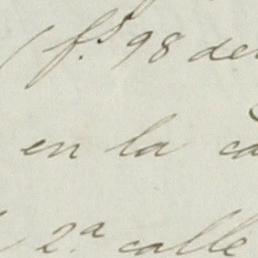 (f.s 98 de
en la ca
2.a calle